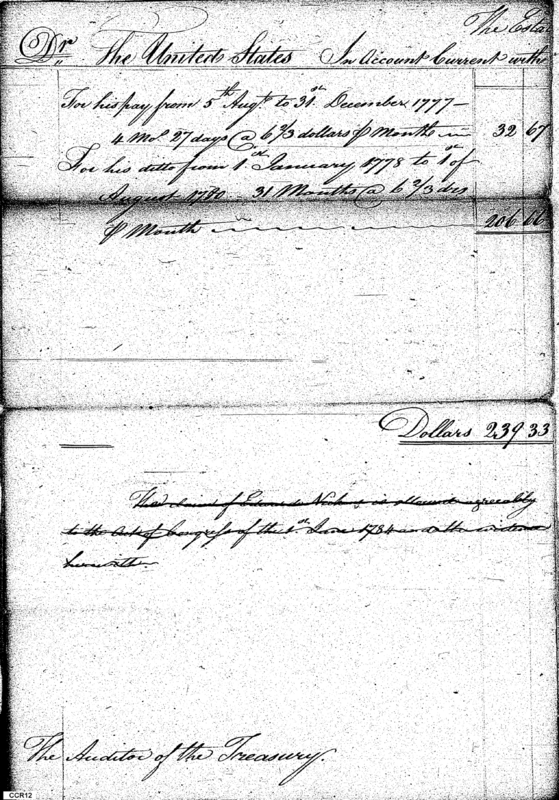 The Esta
Dr The United States In Account Current with
For his pay from 5th Augt. to 31st December 1777 —
4 Mos. 27 days @ 6 2/3 dollars ⅌ Month 32 67
For his ditto from 1st January 1778 to 1st of
August 1780 31 Months @ 6 2/3 drs
⅌ Month 206 66
Dollars 239 33
The claim of is allowed agreeably
to the Act of Congress of the 1st June 1794 and the
herewith.
The Auditor of the Treasury.
CCR12